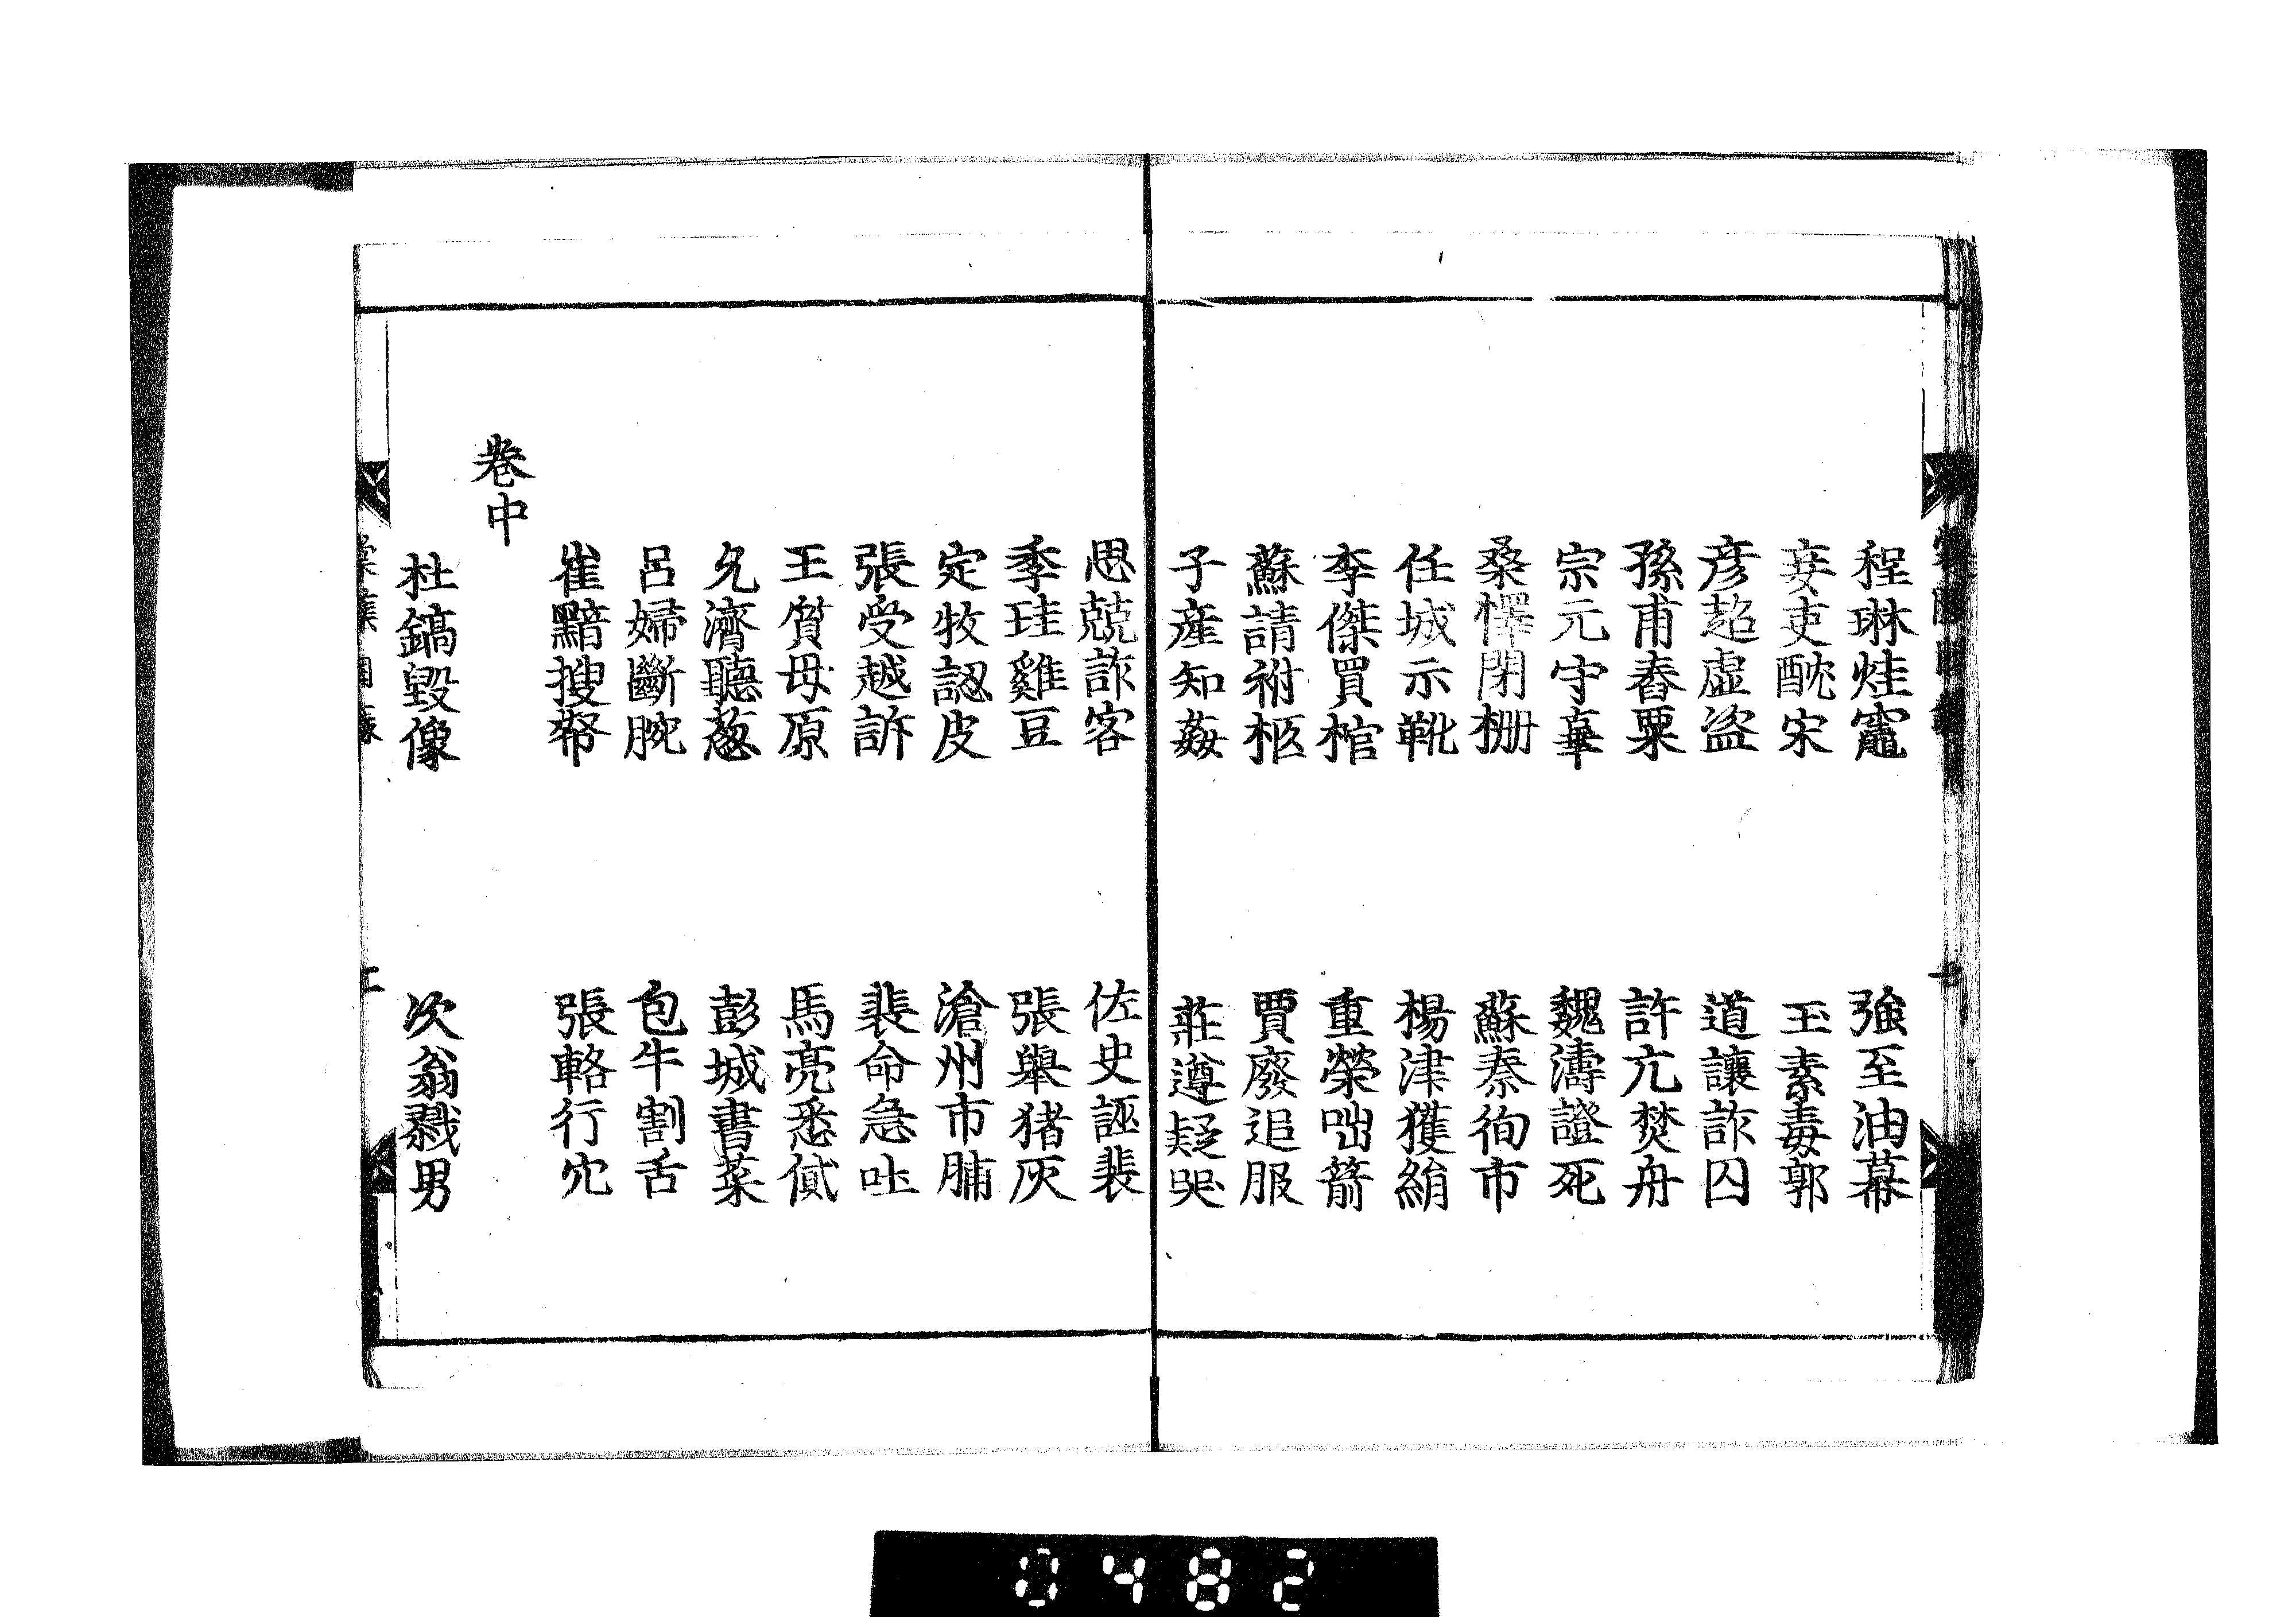 程琳炷竈　強至油幕
妾吏酖宋　玉素毒郭
彦超虚盗　道讓詐囚
孫甫舂粟　許亢焚舟
宗元守辜　魏濤證死
桑懌閉柵　蘇秦徇市
任城示靴　楊津獲絹
李傑買棺　重榮咄箭
蘇請祔柩　賈廢追服
子産知姦　莊遵疑哭
思兢詐客　佐史誣裴
季珪雞豆　張舉猪灰
定牧認皮　滄州市脯
張受越訴　裴命急吐
王質母原　馬亮悉貸
允濟聽葱　彭城書菜
呂婦斷腕　包牛割舌
崔黯搜帑　張輅行穴
卷中
杜鎬毀像　次翁戮男
0482